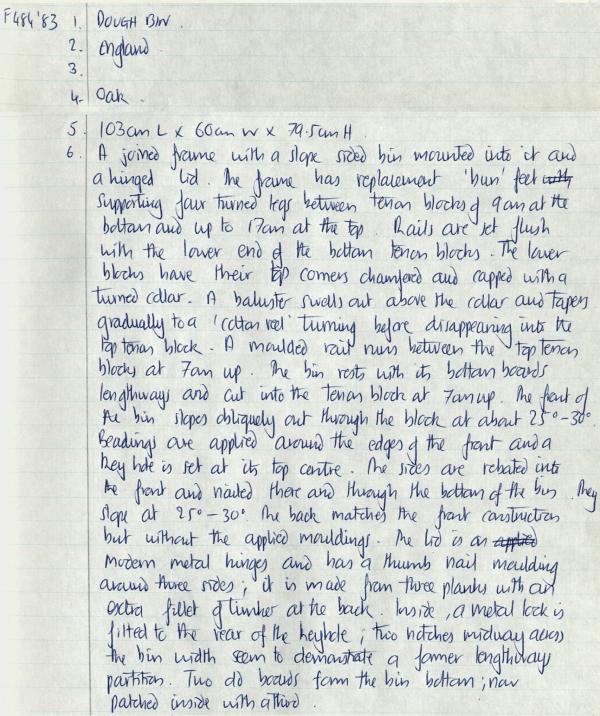 F484'83 1. DOUGH BIN.
2. England.
3.
4. Oak.
5. 103cm L x 60cm W x 79.5cm H.
6. A joined frame with a slope sided bin mounted into it and
a hinged lid. The frame has replacement 'bun' feet with
supporting four turned legs between tenon blocks of 9cm at the
bottom and up to 17cm at the top. Rails are set flush
with the lower end of the bottom tenon blocks. The lower
blocks have their top corners chamfered and capped with a
turned collar. A baluster swells out above the collar and tapers
gradually to a 'cotton reel' turning before disappearing into the
top tenon block. A moulded rail runs between the top tenon
blocks at 7cm up. The bin rests with its bottom boards
lengthways and cut into the tenon block at 7cm up. The front of
the bin slopes obliquely out through the block at about 25°-30°.
Beadings are applied around the edges of the front and a
keyhole is set at its top centre. The sides are rebated into
the front and nailed there and through the bottom of the bin. They
slope at 25°-30°. The back matches the front construction
but without the applied mouldings. The lid is on applied
modern metal hinges and has a thumb nail moulding
around three sides; it is made from three planks with an
extra fillet of timber at the back. Inside, a metal lock is
fitted to the rear of the keyhole; two notches midway across
the bin width seem to demonstrate a former lengthways
partition. Two old boards form the bin bottom; now
patched inside with a third.